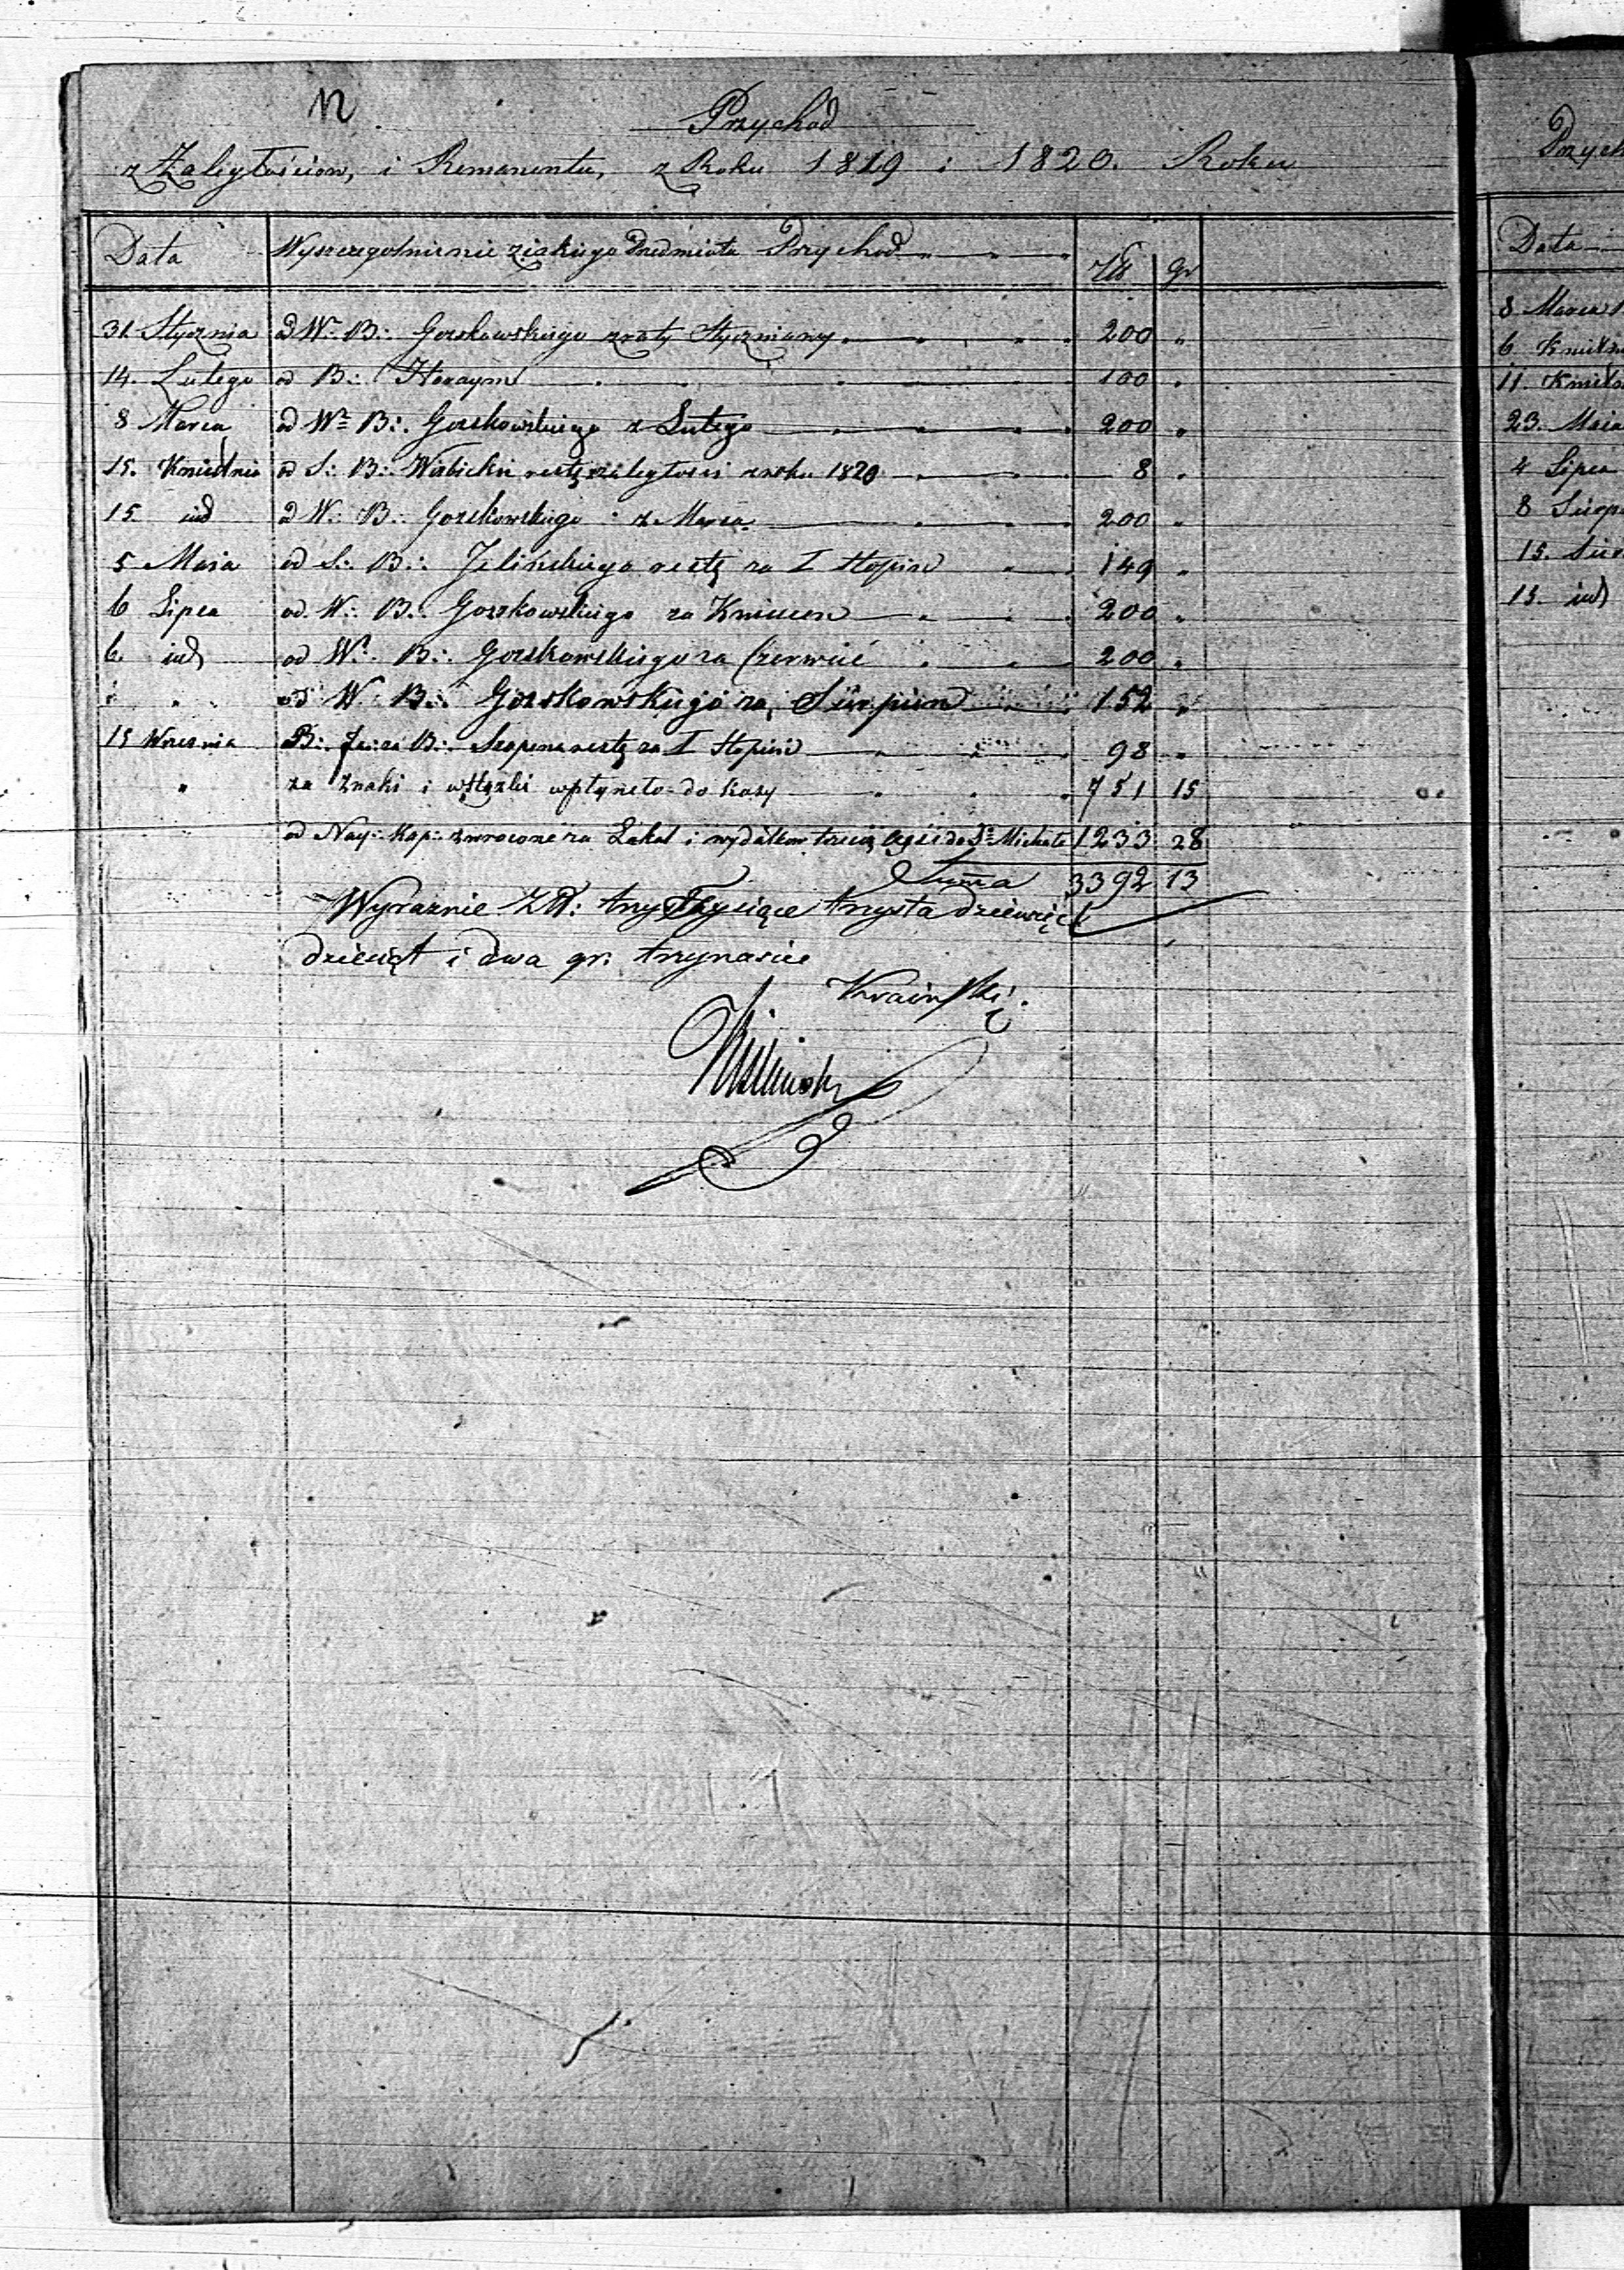 12
Przychód
z Zaległościow, i Remanentu, z Roku 1819 i 1820. Roku
Data Wyszczegolnienie z iakiego Przedmiotu Przychod Złł Gr
31 Stycznia od Wo. B∴ Gorzkowskiego z raty Styczniowy 200 "
14. Lutego od B∴ 100 "
8 Marca od Wo B∴ Gorzkowskiego z Lutego 200 "
15. Kwietnia od S∴ B∴ resztę zaległosci z roku 1820 8 "
15. iud od W∴ B∴ Gorzkowskiego z Marca 200 "
5 Maia od S∴ B∴ Jelińskiego resztę za I stopień 149 "
6 Lipca od W∴ B∴ Gorzkowskiego za Kwiecien 200 "
6. iud od Wo. B∴ Gorzkowskiego za Czerwiec 200 "
" " od W. B∴ Gorzkowskiego za Sierpień 152 "
15 Wrzesnia B∴ B∴ Szopena resztę za I stopień 98 "
" za znaki i wstęzki wpłyneło do kasy 751 15
" od Nay∴ Kap∴ zwrocone za Lokal i wydatkow trzecią częśc do So Michała 1233 28
Summa 3392 13
Wyraznie Złł: trzy Tysiące trzysta dziewięć
dziesiąt i dwa gr. trzynascie
Krainski.